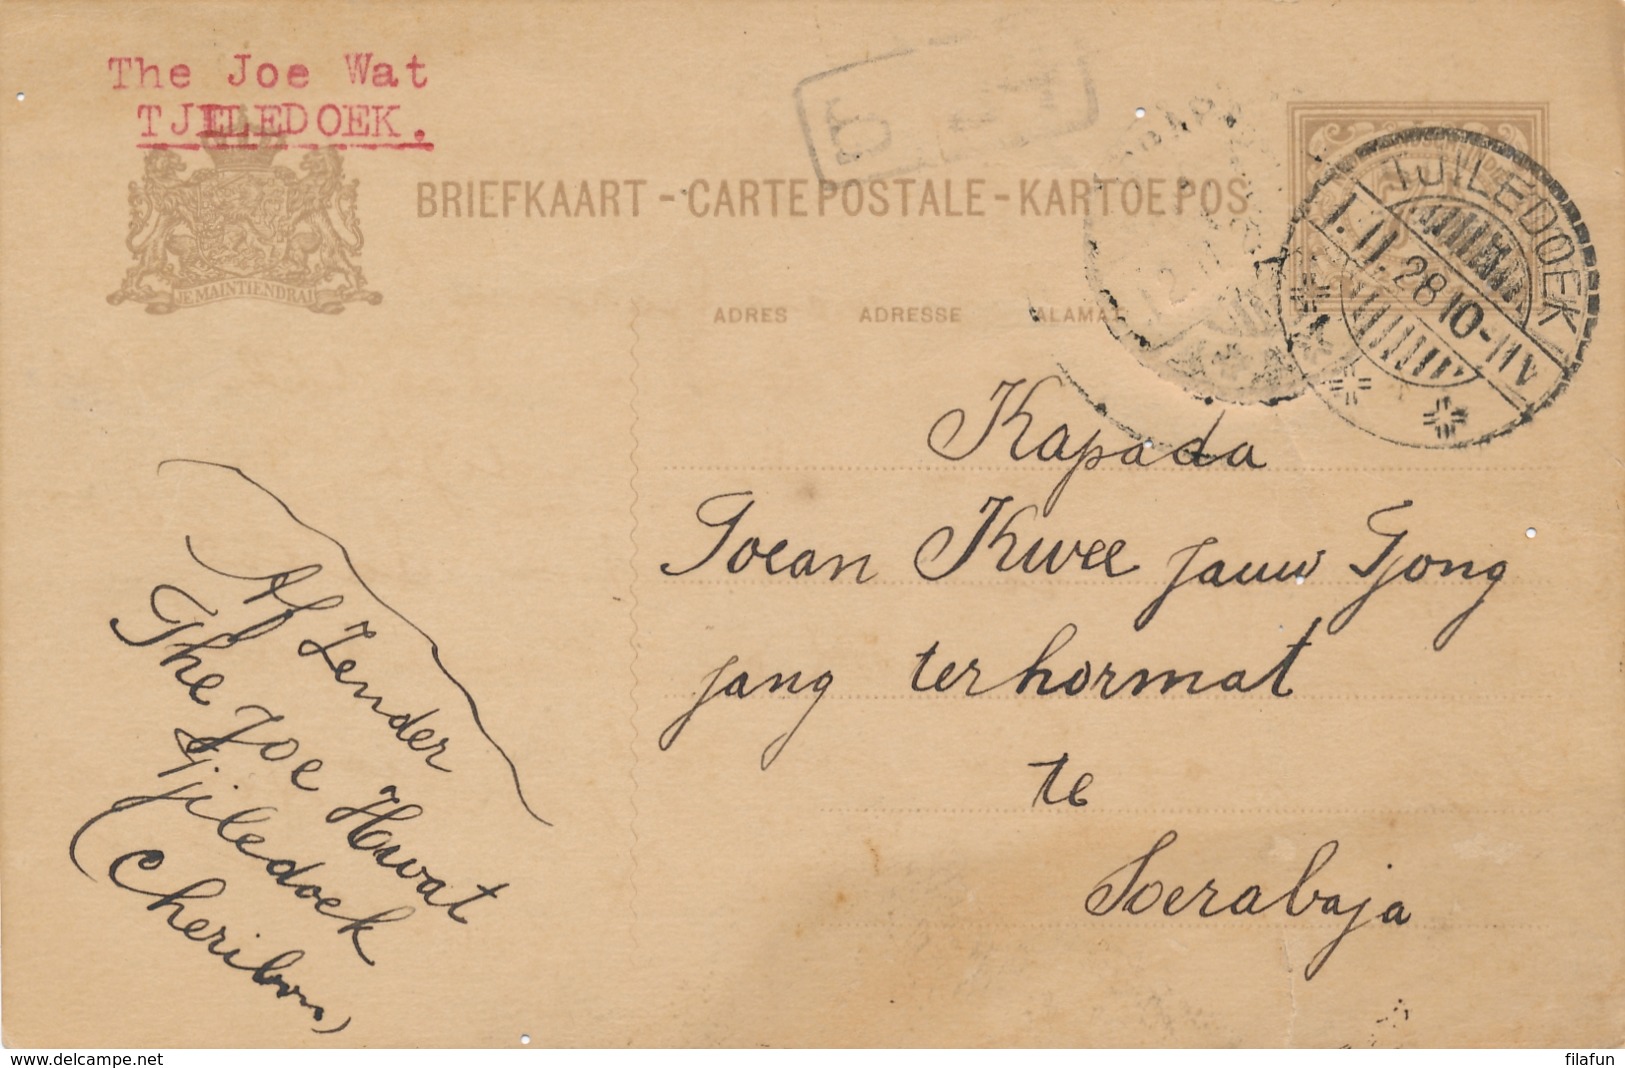 The Joe Wat
TJILEDOEK.
JE MAINTIENDRAI
BRIEFKAART - CARTE POSTALE - KARTOE POS
TJILEDOEK
1.11.28 10-11V
ADRES ADRESSE ALAMAT
Kapada
Toean Kwee Jauw Tjong
jang terhormat
te
Soerabaja
Afzender
The Joe Hwat
Tjiledoek
(Cheribon)
delcampe.net
filafun